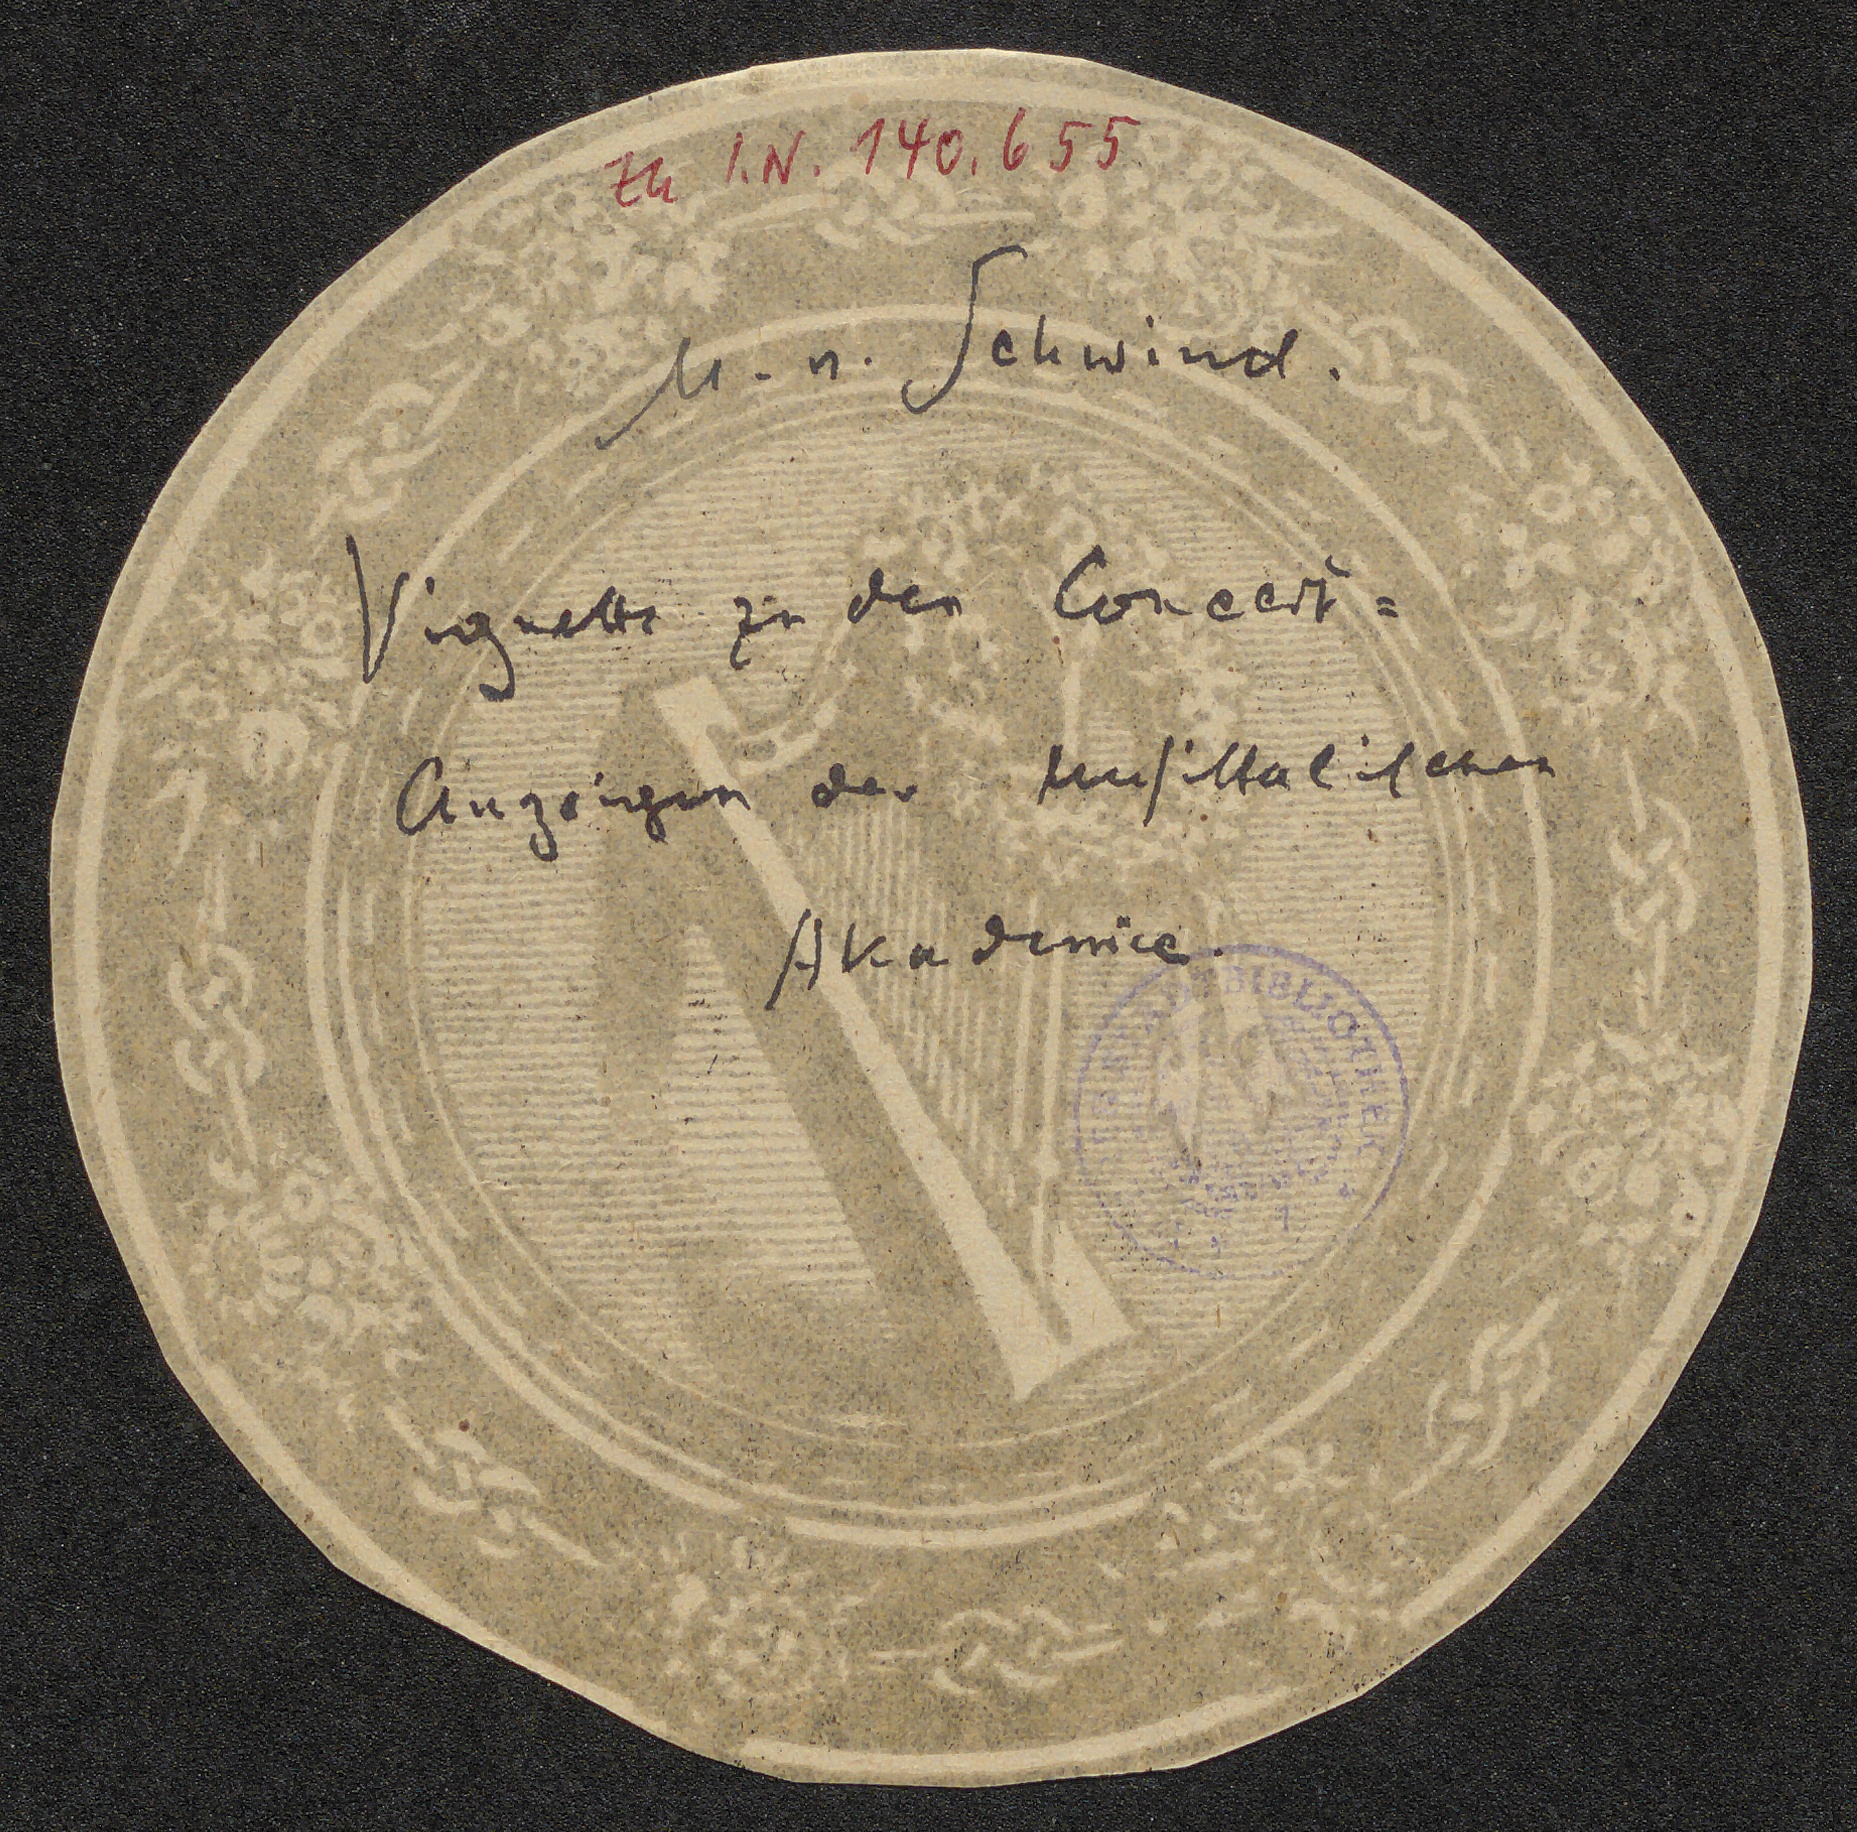 Zu I.N. 140.655
M. v. Schwind.
Vignette zu den Concert=
Anzeigen der Musikalischen
Akademie.
BIBLIOTHEK